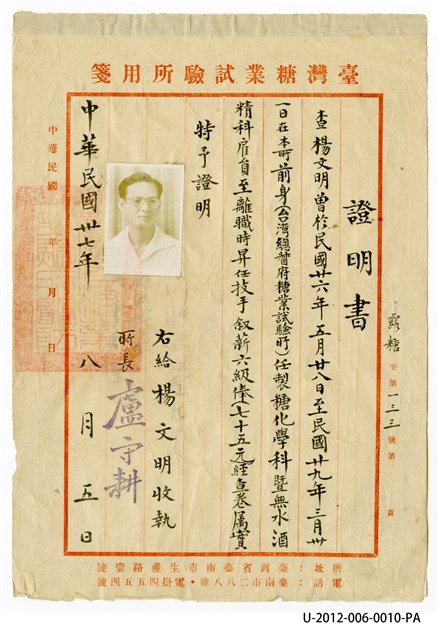 臺灣糖業試驗所用箋
證明書
露糖字第一三三號第 頁
查楊文明曾於民國廿六年五月廿八日至民國廿九年三月卅
一日在本所前身(台灣總督府糖業試驗所)任製糖化學科暨無水酒
精科雇員至離職時昇任技手敘薪六級俸七十五元經查卷屬實
特予證明
右給楊文明收執
所長盧守耕
中華民國卅七年八月五日
中華民國 年 月 日
所址:臺灣省臺南市生產路臺號
電話:臺南市二八八號·電掛四五五四號
U-2012-006-0010-PA